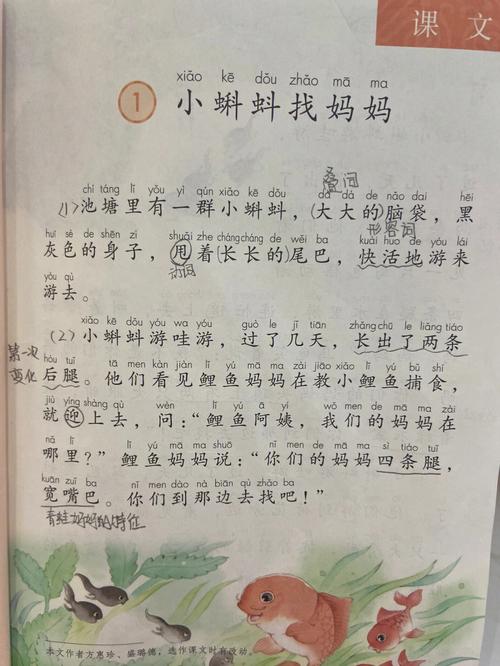 课文
xiǎo kē dǒu zhǎo mā ma
1 小蝌蚪找妈妈
叠词
chí táng lǐ yǒu yì qún xiǎo kē dǒu dà dà de nǎo dai hēi
(1)池塘里有一群小蝌蚪，(大大的)脑袋，黑
形容词
huī sè de shēn zi shuǎi zhe cháng cháng de wěi ba kuài huo de yóu lái
灰色的身子，甩着(长长的)尾巴，快活地游来
动词
yóu qù
游去。
xiǎo kē dǒu yóu wa yóu guò le jǐ tiān zhǎng chū le liǎng tiáo
(2)小蝌蚪游哇游，过了几天，长出了两条
第一次
变化
hòu tuǐ tā men kàn jiàn lǐ yú mā ma zài jiāo xiǎo lǐ yú bǔ shí
后腿。他们看见鲤鱼妈妈在教小鲤鱼捕食，
jiù yíng shàng qù wèn lǐ yú ā yí wǒ men de mā ma zài
就迎上去，问：“鲤鱼阿姨，我们的妈妈在
nǎ lǐ lǐ yú mā ma shuō nǐ men de mā ma sì tiáo tuǐ
哪里？”鲤鱼妈妈说：“你们的妈妈四条腿，
kuān zuǐ ba nǐ men dào nà biān qù zhǎo ba
宽嘴巴。你们到那边去找吧！”
青蛙妈妈的特征
本文作者方惠珍、盛璐德，选作课文时有改动。